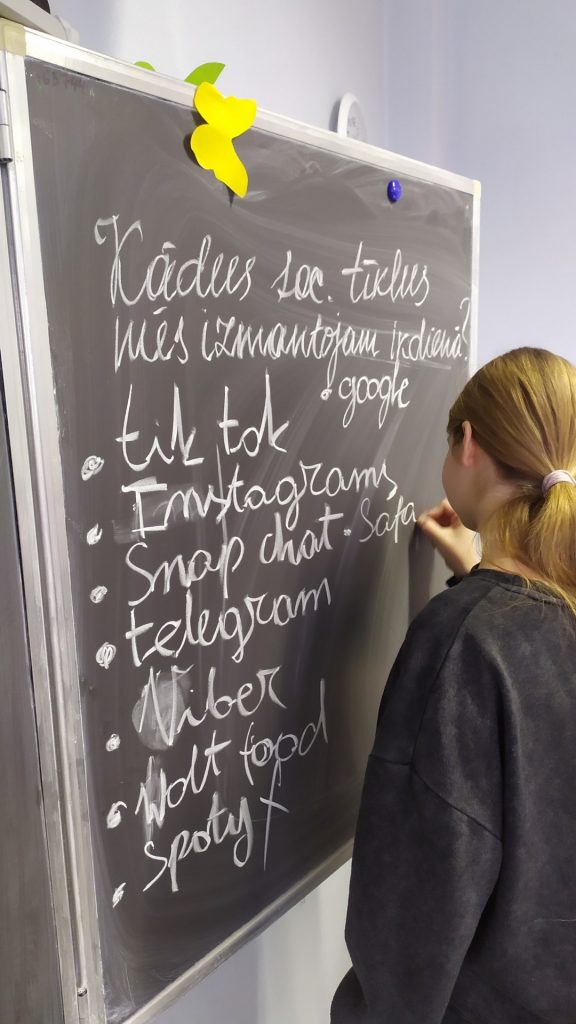 Kādus soc. tīklus
mēs izmantojam ikdienā?
• google
• tik tok
• Instagrams
• Snap chat • Safa
• telegram
• Viber
• Wolt food
• Spotyf